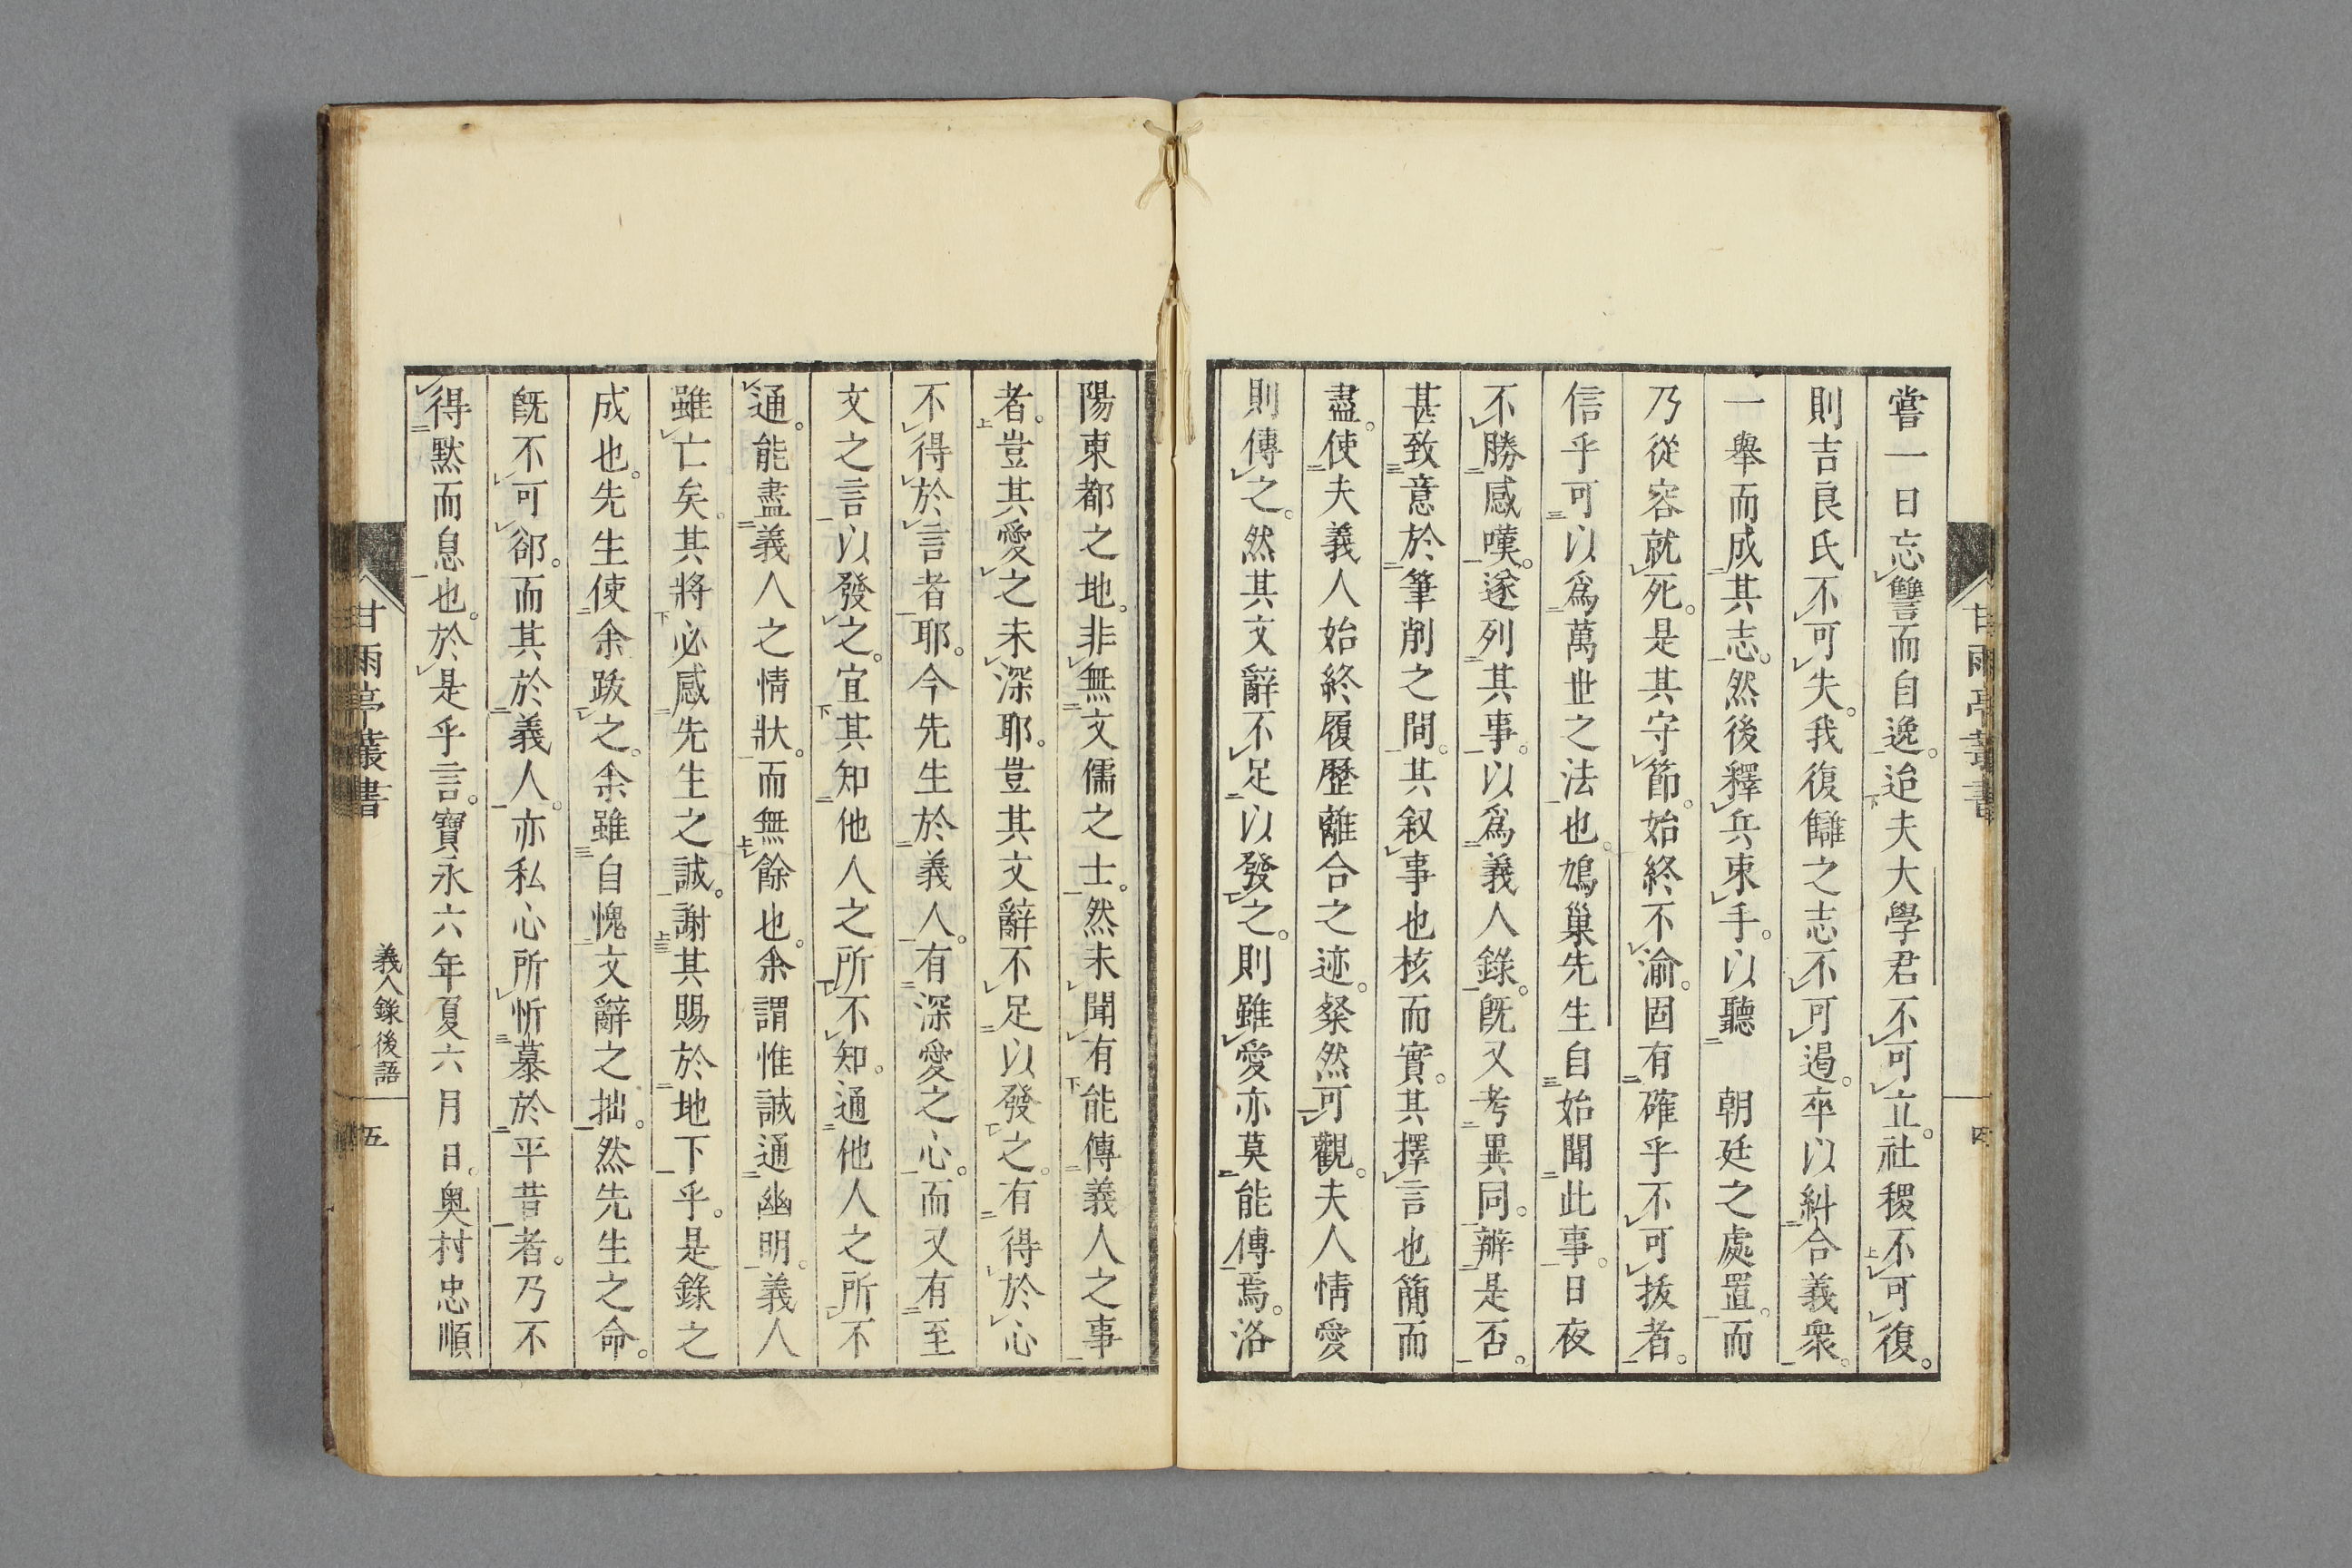 嘗一日忘讐而自逸。迨夫大學君不可立。社稷不可復。
則吉良氏不可失。我復讎之志不可遏。卒以糾合義衆。
一舉而成其志。然後釋兵束手。以聽　朝廷之處置。而
乃從容就死。是其守節。始終不渝。固有確乎不可拔者。
信乎可以爲萬世之法也。鳩巢先生自始聞此事。日夜
不勝感嘆。遂列其事。以爲義人錄。旣又考異同。辨是否。
甚致意於筆削之間。其叙事也核而實。其擇言也簡而
盡。使夫義人始終履歷離合之迹。粲然可觀。夫人情愛
則傳之。然其文辭不足以發之。則雖愛亦莫能傳焉。洛
甘雨亭叢書
四
陽東都之地。非無文儒之士。然未聞有能傳義人之事
者。豈其愛之未深耶。豈其文辭不足以發之。有得於心
不得於言者耶。今先生於義人。有深愛之心。而又有至
文之言以發之。宜其知他人之所不知。通他人之所不
通。能盡義人之情狀。而無餘也。余謂惟誠通幽明。義人
雖亡矣。其將必感先生之誠。謝其賜於地下乎。是錄之
成也。先生使余跋之。余雖自愧文辭之拙。然先生之命。
旣不可郤。而其於義人。亦私心所忻慕於平昔者。乃不
得默而息也。於是乎言。寶永六年夏六月日。奥村忠順
甘雨亭叢書
義人錄後語
五